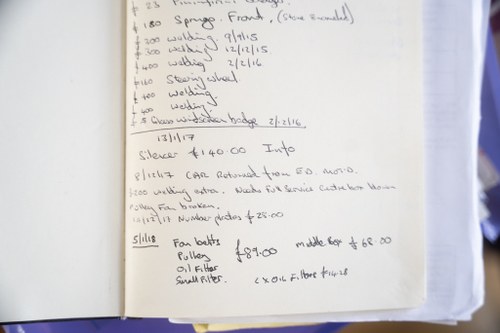 £ 25
£ 180 Springs. Front. (Stone Enameled)
£ 200 welding 9/9/15
£ 300 welding 12/12/15
£ 400 welding 2/2/16
£ 160 Steering wheel.
£ 400 welding.
£ 400 welding
£ 5 Glass windscreen badge 2/12/16.
13/1/17
Silencer £140.00 Info
8/12/17 CAR Returned from E.D. M.O.T.D.
£200 welding extra. Needs Full Service
Pulley Fan broken.
10/12/17 Number plates £25.00
5/1/18 Fan belts £89.00 middle £68.00
Pulley
Oil Filter
Small Filter. 2 x Oil Filters £14.28